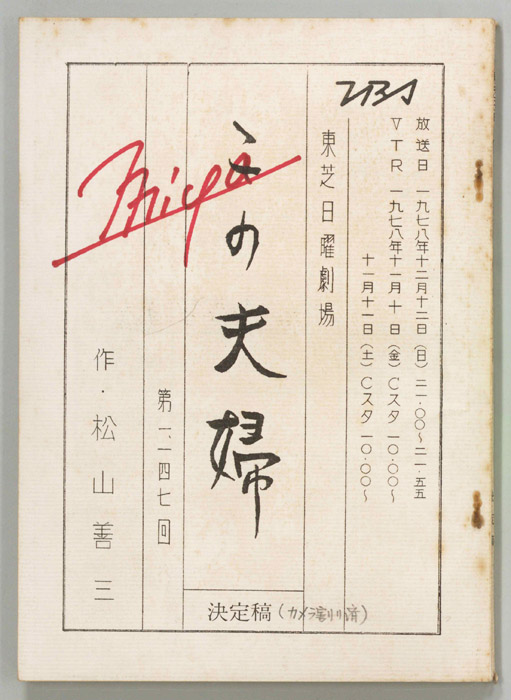 TBS
放送日 一九七八年十二月十二日(日)二一・〇〇～二一・五五
VTR 一九七八年十一月十日(金)Cスタ一〇・〇〇～
十一月十一日(土)Cスタ一〇・〇〇～
東芝日曜劇場
この夫婦
決定稿(カメラ割り済)
第一、一四七回
作・松山善三
Miya